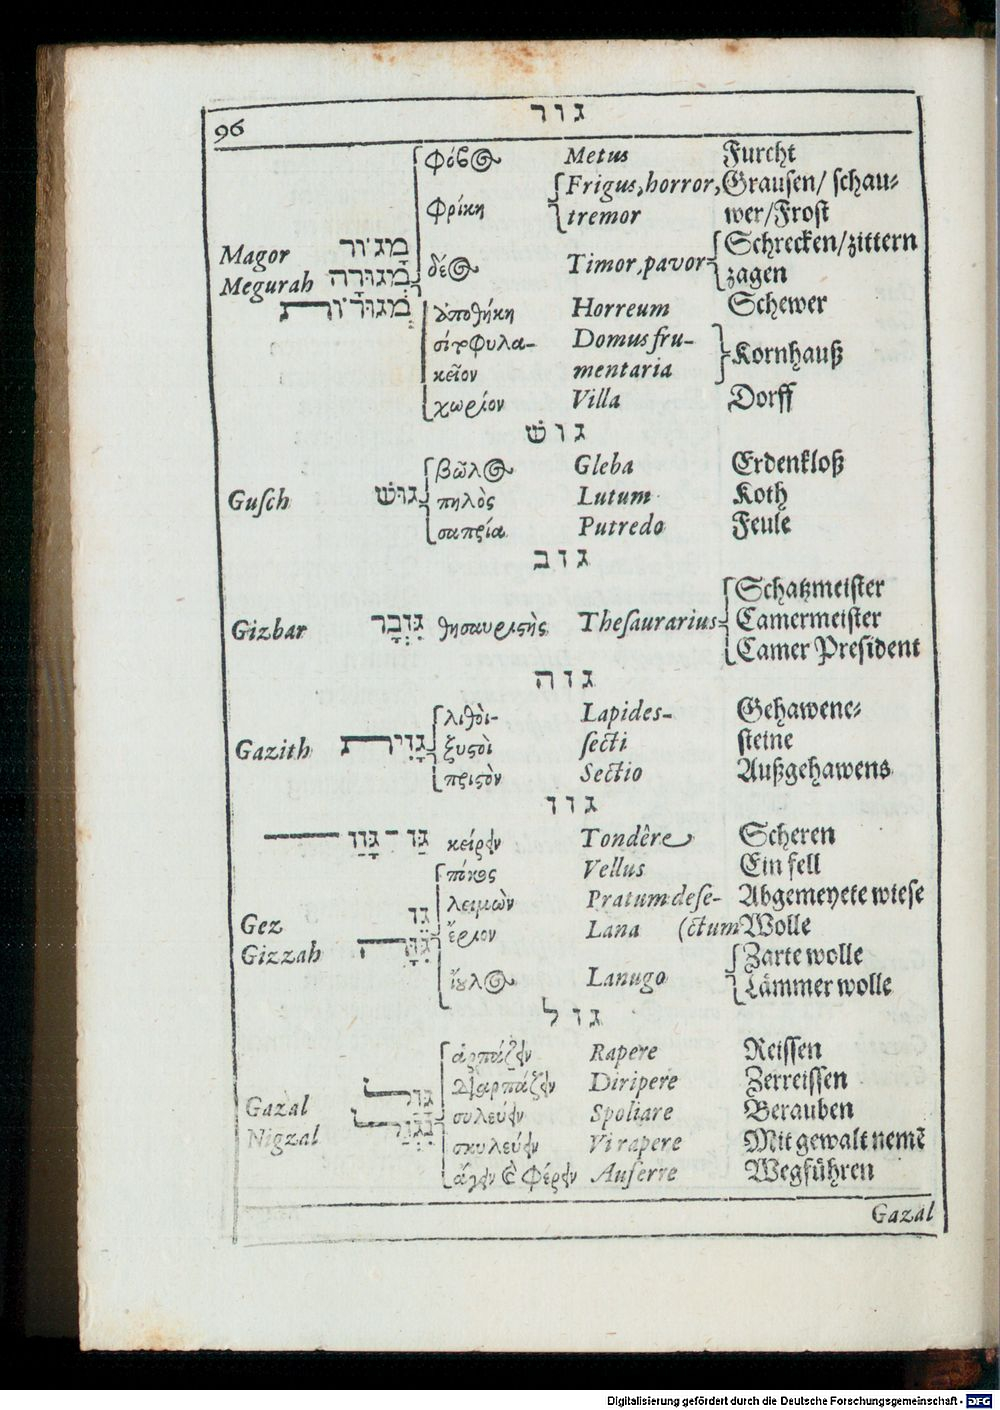 96 גור
φόβος Metus Furcht
φρίκη Frigus, horror, Grausen/ schau⸗
tremor wer/Frost
Magor מָגוֹר δέος Timor, pavor Schrecken/zittern
Megurah מְגוּרָה zagen
מְגוּרוֹת ἀποθήκη Horreum Schewer
σιτοφυλα- Domus fru- Kornhauß
κεῖον mentaria
χωρίον Villa Dorff
גוש
βῶλος Gleba Erdenkloß
Gusch גוּשׁ πηλὸς Lutum Koth
σαπρία Putredo Feule
גזב
Schatzmeister
Gizbar גִּזְבָר θησαυριστὴς Thesaurarius Camermeister
Camer President
גזה
λιθοὶ- Lapides- Gehawene⸗
Gazith גָּזִית ξυστοὶ secti steine
πριστὸν Sectio Außgehawens
גזז
גַּז - גָּזַז κείρειν Tondêre Scheren
πόκος Vellus Ein fell
λειμὼν Pratum dese- Abgemeyete wiese
Gez גֵּז ἔριον Lana (ctum Wolle
Gizzah גִּזָּה Zarte wolle
ἴουλος Lanugo Lämmer wolle
גזל
ἁρπάζειν Rapere Reissen
διαρπάζειν Diripere Zerreissen
Gazal גָּזַל συλεύειν Spoliare Berauben
Nigzal נִגְזַל σκυλεύειν Vi rapere Mit gewalt nemē
ἄγειν & φέρειν Auferre Wegführen
Gazal
Digitalisierung gefördert durch die Deutsche Forschungsgemeinschaft - DFG